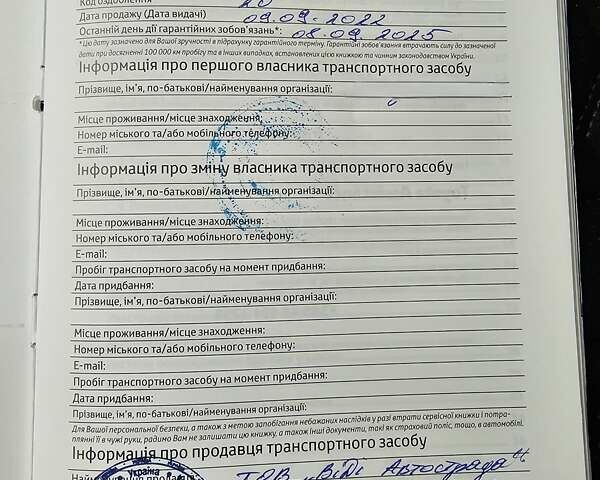 Код оздоблення 20
Дата продажу (Дата видачі) 09.09.2022
Останній день дії гарантійних зобов'язань*: 08.09.2025
*Цю дату зазначено для Вашої зручності в підрахунку гарантійного терміну. Гарантійні зобов'язання втрачають силу до зазначеної
дати при досягненні 100 000 км пробігу та в інших випадках, встановлених цією книжкою та чинним законодавством України.
Інформація про першого власника транспортного засобу
Прізвище, ім'я, по-батькові/найменування організації:
Місце проживання/місце знаходження:
Номер міського та/або мобільного телефону:
E-mail:
Інформація про зміну власника транспортного засобу
Прізвище, ім'я, по-батькові/найменування організації:
Місце проживання/місце знаходження:
Номер міського та/або мобільного телефону:
E-mail:
Пробіг транспортного засобу на момент придбання:
Дата придбання:
Прізвище, ім'я, по-батькові/найменування організації:
Місце проживання/місце знаходження:
Номер міського та/або мобільного телефону:
E-mail:
Пробіг транспортного засобу на момент придбання:
Дата придбання:
Прізвище, ім'я, по-батькові/найменування організації:
Для Вашої персональної безпеки, а також з метою запобігання небажаних наслідків у разі втрати сервісної книжки і потра-
плянні її в чужі руки, радимо Вам не залишати цю книжку, а також інші документи, такі як страховий поліс, тощо, в автомобілі.
Інформація про продавця транспортного засобу
Україна
ТОВ "ВіДі Автострада"